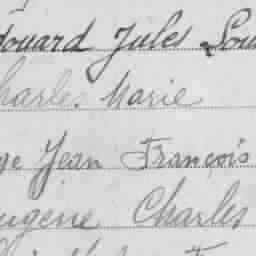 douard Jules Lou
harles Marie
ge Jean François
ugène Charles